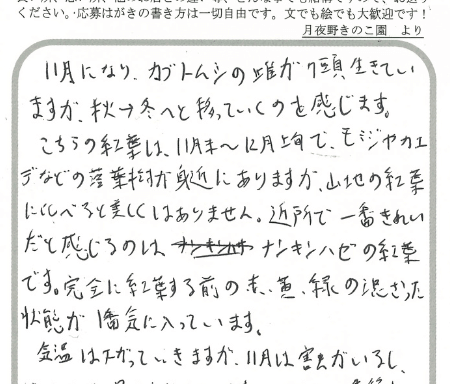 ください。·応募はがきの書き方は一切自由です。 文でも絵でも大歓迎です！
月夜野きのこ園　より
11月になり、カブトムシの雌が7頭生きてい
ますが、秋→冬へと移っていくのを感じます。
こちらの紅葉は、11月末〜12月上旬で、モミジやカエ
デなどの落葉樹が身近にありますが、山地の紅葉
にくらべると美しくはありません。近所で一番きれい
だと感じるのは ナンキンハゼの紅葉
です。完全に紅葉する前の赤、黄、緑の混ざった
状態が1番気に入っています。
気温は下がっていきますが、11月は害虫がいるし、